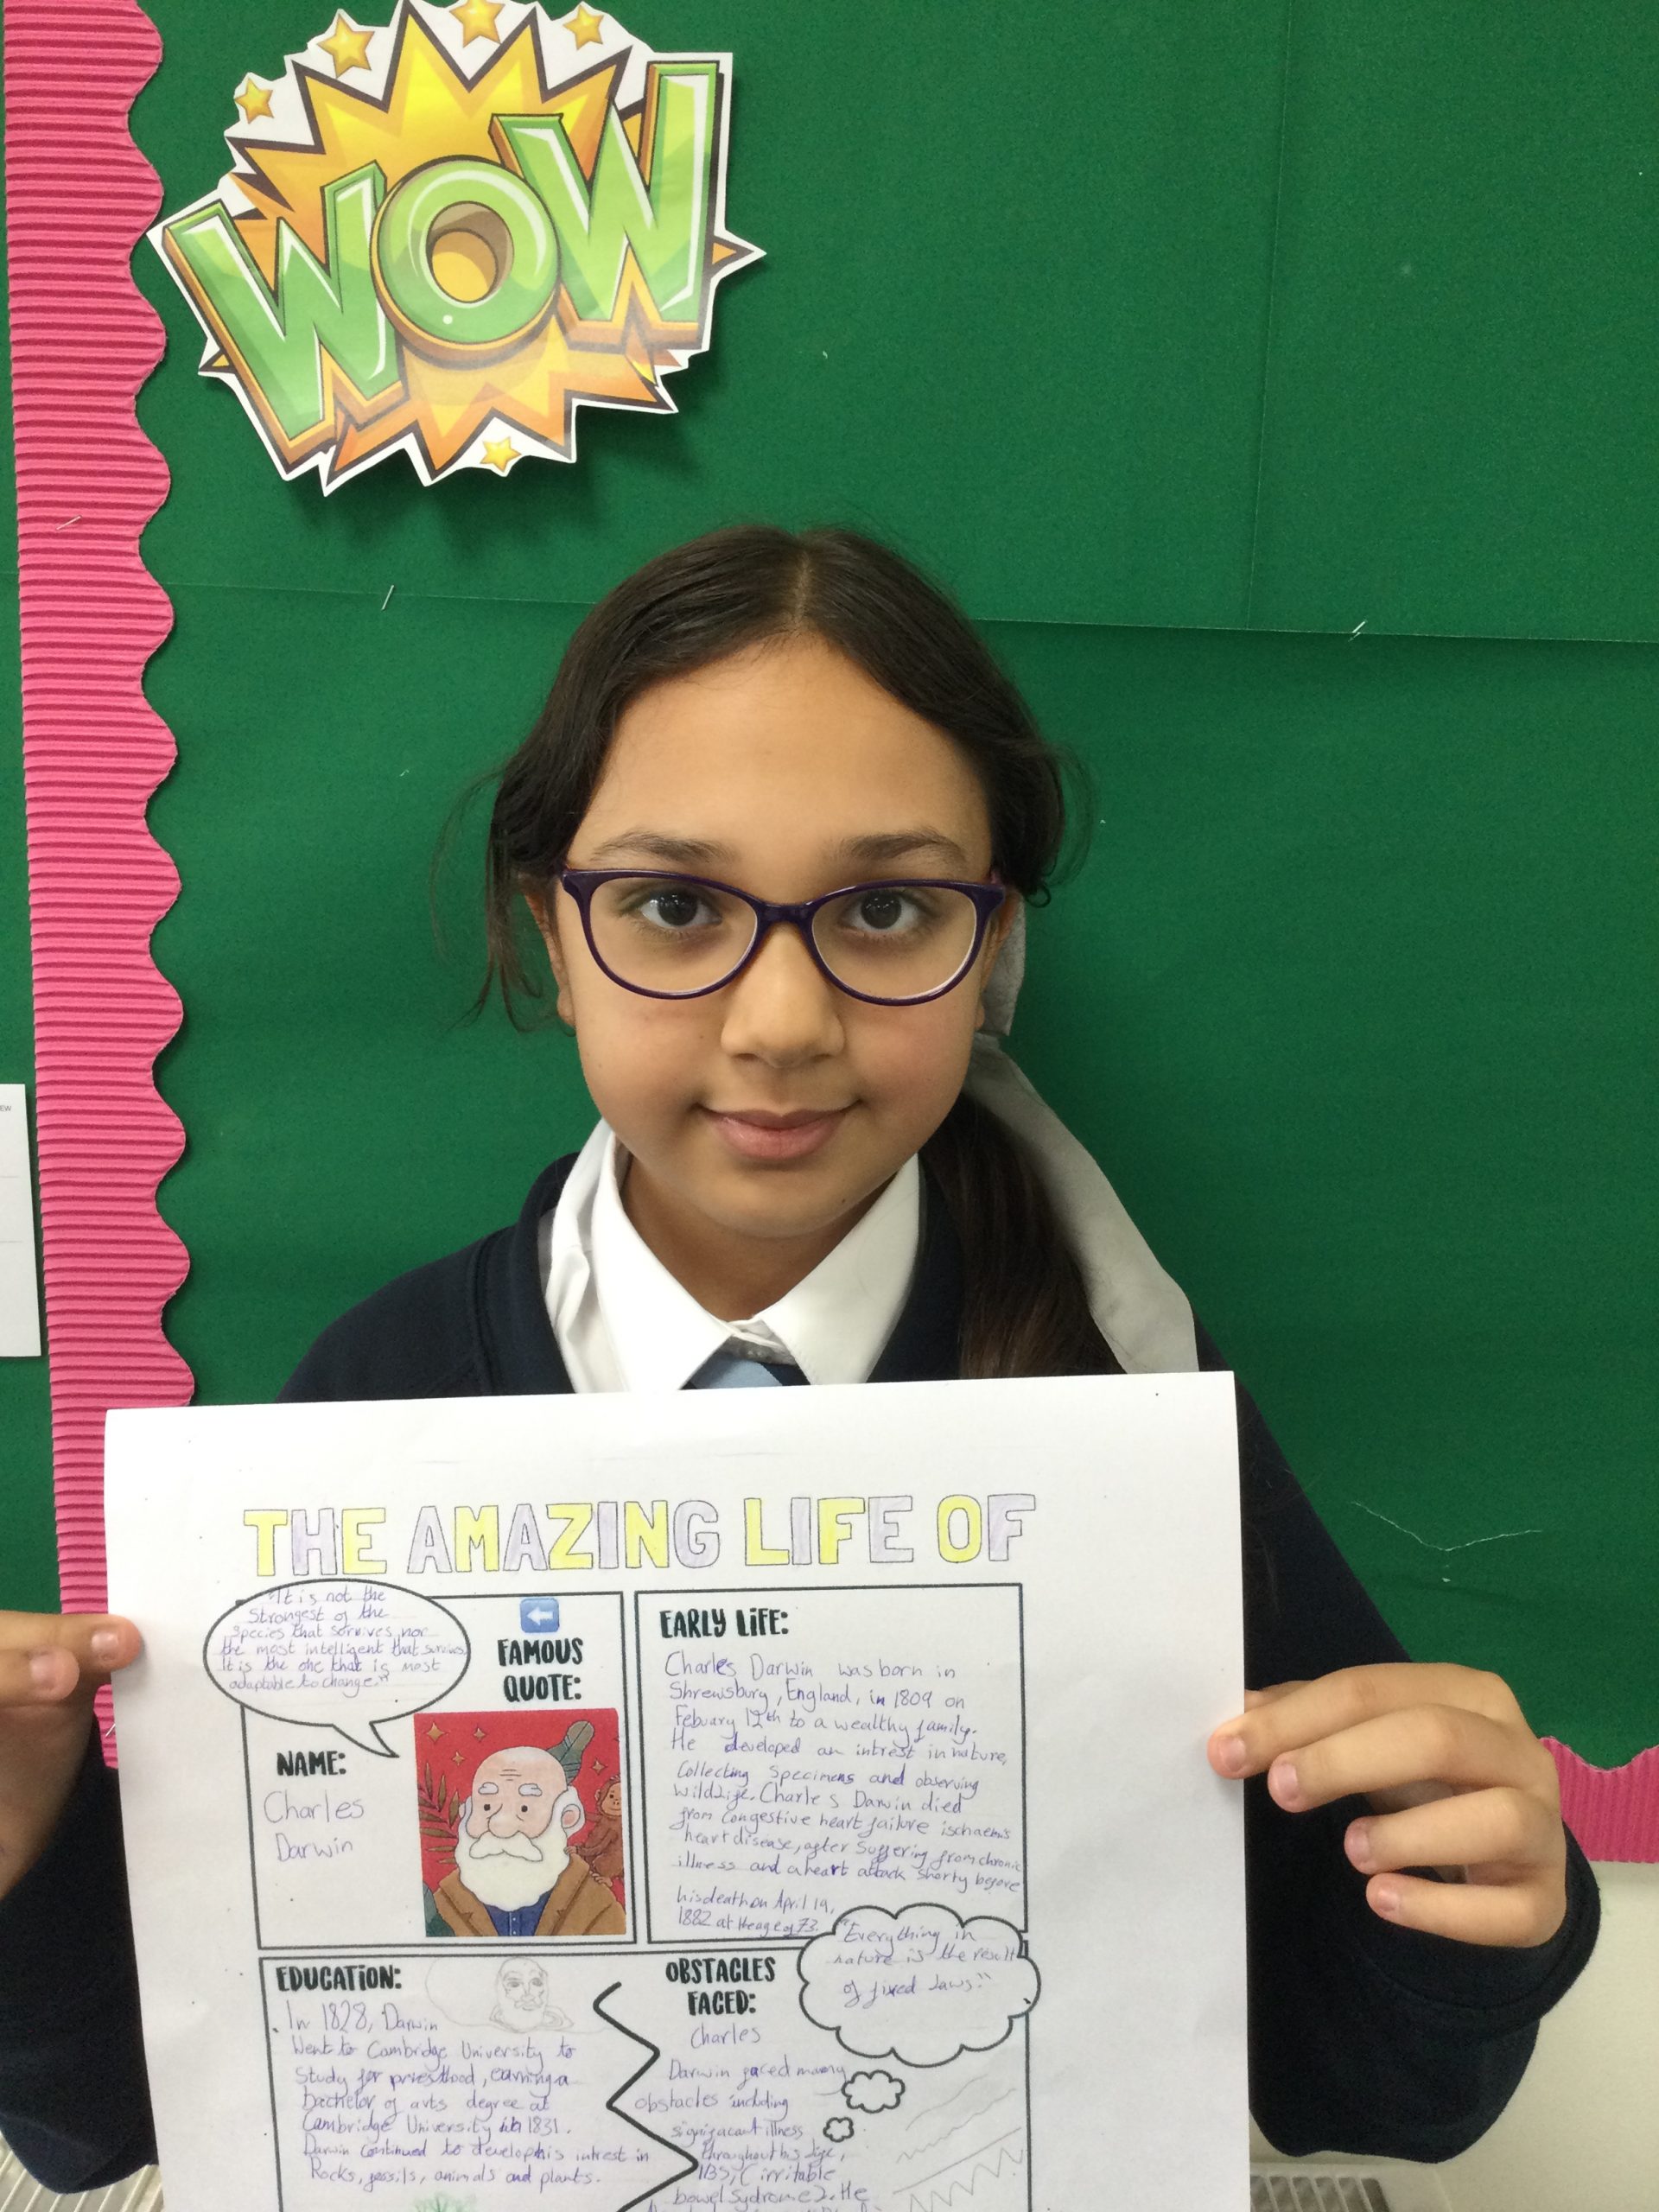 WOW
EW
THE AMAZING LIFE OF
"It is not the
Strongest of the
species that survives, nor
the most intelligent that survives.
It is the one that is most
adaptable to change."
FAMOUS
QUOTE:
NAME:
Charles
Darwin
EARLY LIFE:
Charles Darwin was born in
Shrewsbury, England, in 1809 on
Febuary 12th to a wealthy family.
He developed an intrest in nature,
Collecting specimens and observing
wildlife. Charles Darwin died
from congestive heart failure ischaemis
heart disease, after Suffering from chronic
illness and a heart attack shorty before
his death on April 19,
1882 at the age of 73.
EDUCATION:
In 1828, Darwin
Went to Cambridge University to
Study for priesthood, earning a
bachelor of arts degree at
Cambridge University in 1831.
Darwin continued to develop his intrest in
Rocks, fossils, animals and plants.
OBSTACLES
FACED:
Charles
Darwin faced many
obstacles including
significant illness
throughout his life,
IBS, (irritable
bowel sydrome). He
"Everything in
nature is the result
of fixed laws."